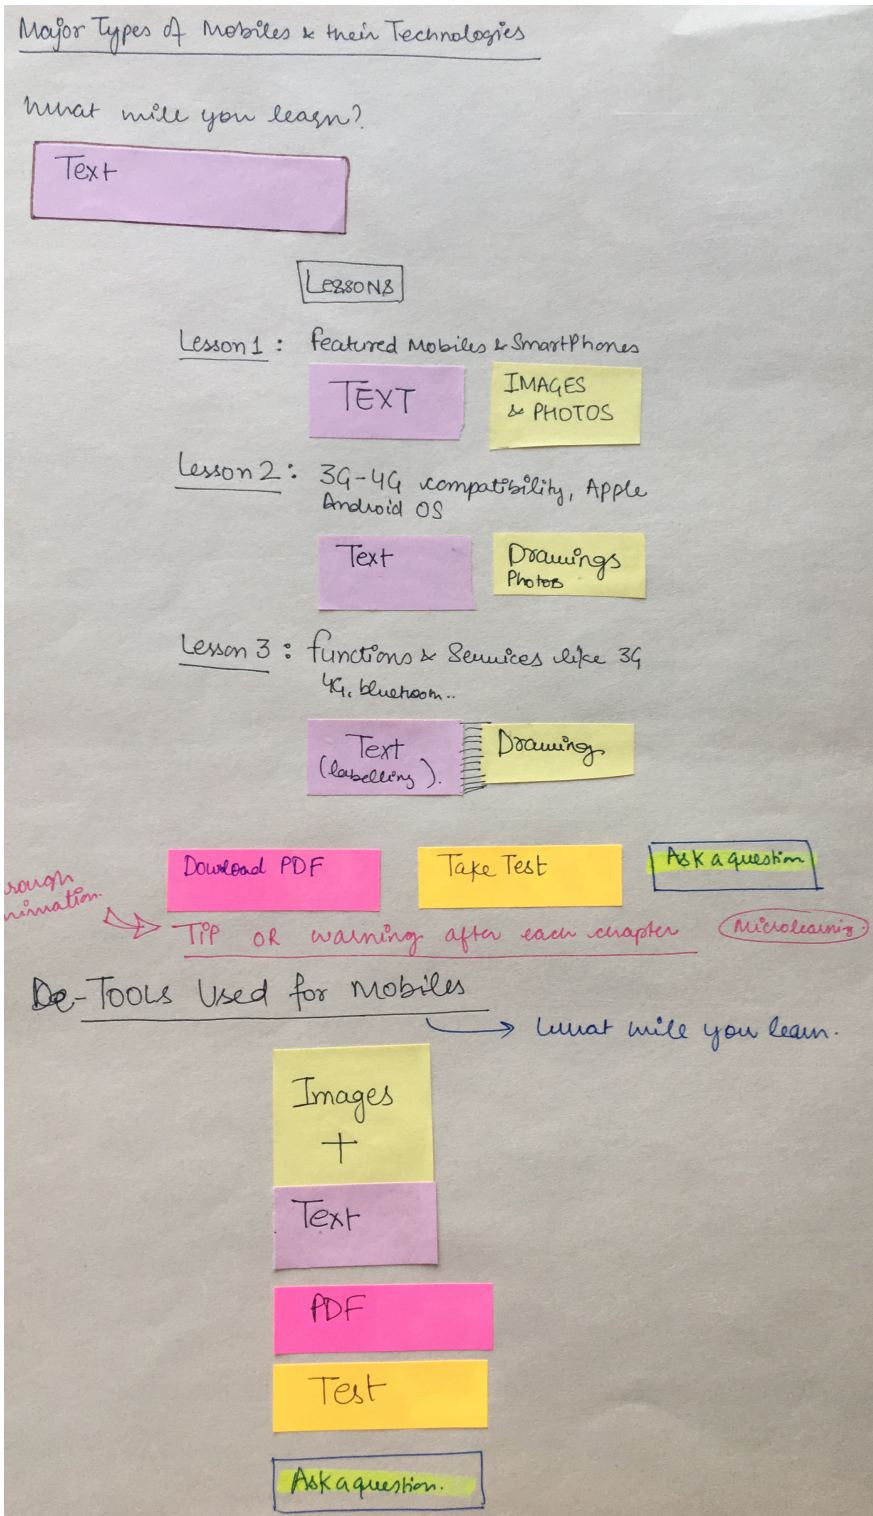 Major Types of Mobiles & their Technologies
What will you learn?
Text
Lessons
Lesson 1 : Featured Mobiles & SmartPhones
TEXT
IMAGES
& PHOTOS
Lesson 2 : 3G-4G compatibility, Apple
Android OS
Text
Drawings
Photos
Lesson 3 : functions & Services like 3G
4G, bluetoom..
Text
(labelling).
Drawing
Dowload PDF
Take Test
Ask a question
rough
nimation.
TIP OR warning after each chapter
Microlearning.
De-Tools Used for Mobiles
What will you learn.
Images
+
Text
PDF
Test
Ask a question.